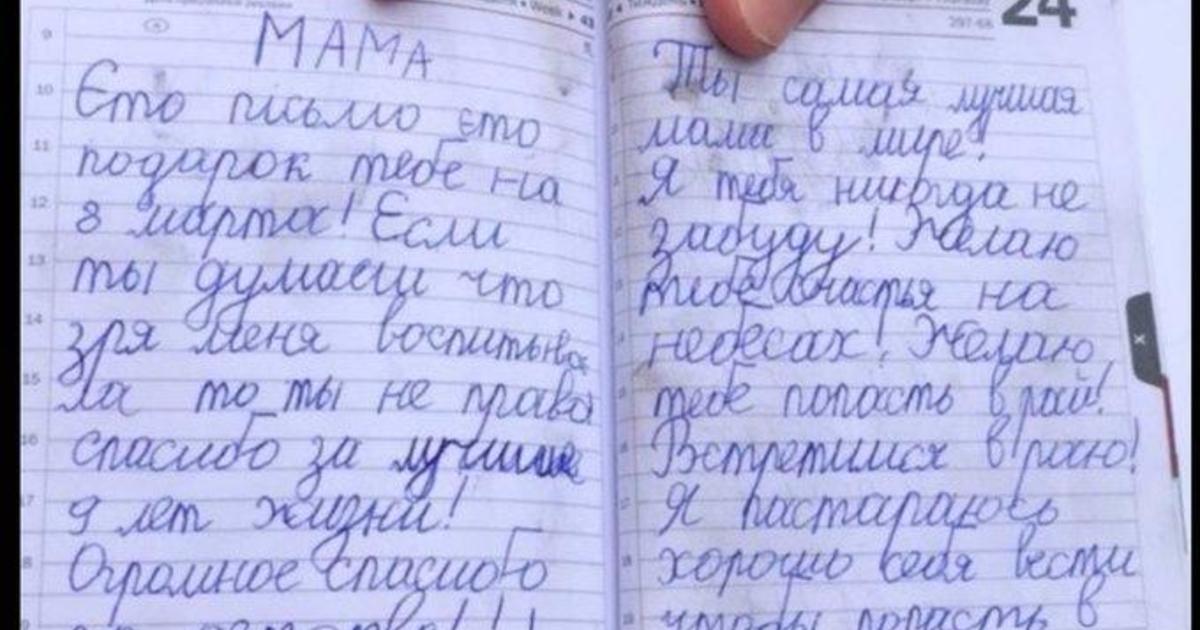 МАМА
Єто письмо єто
подарок тебе на
8 марта! Если
ты думаеш что
зря меня воспитыва
ла то ты не права
спасибо за лучшие
9 лет жизни!
Огромное спасибо
24
297-68
Ты самая лучшая
мама в мире!
Я тебя никогда не
забуду! Желаю
тебе счастья на
небесах! Желаю
тебе попасть в рай!
Встретимся в раю!
Я пастараюсь
хорошо себя вести
чтобы попасть в